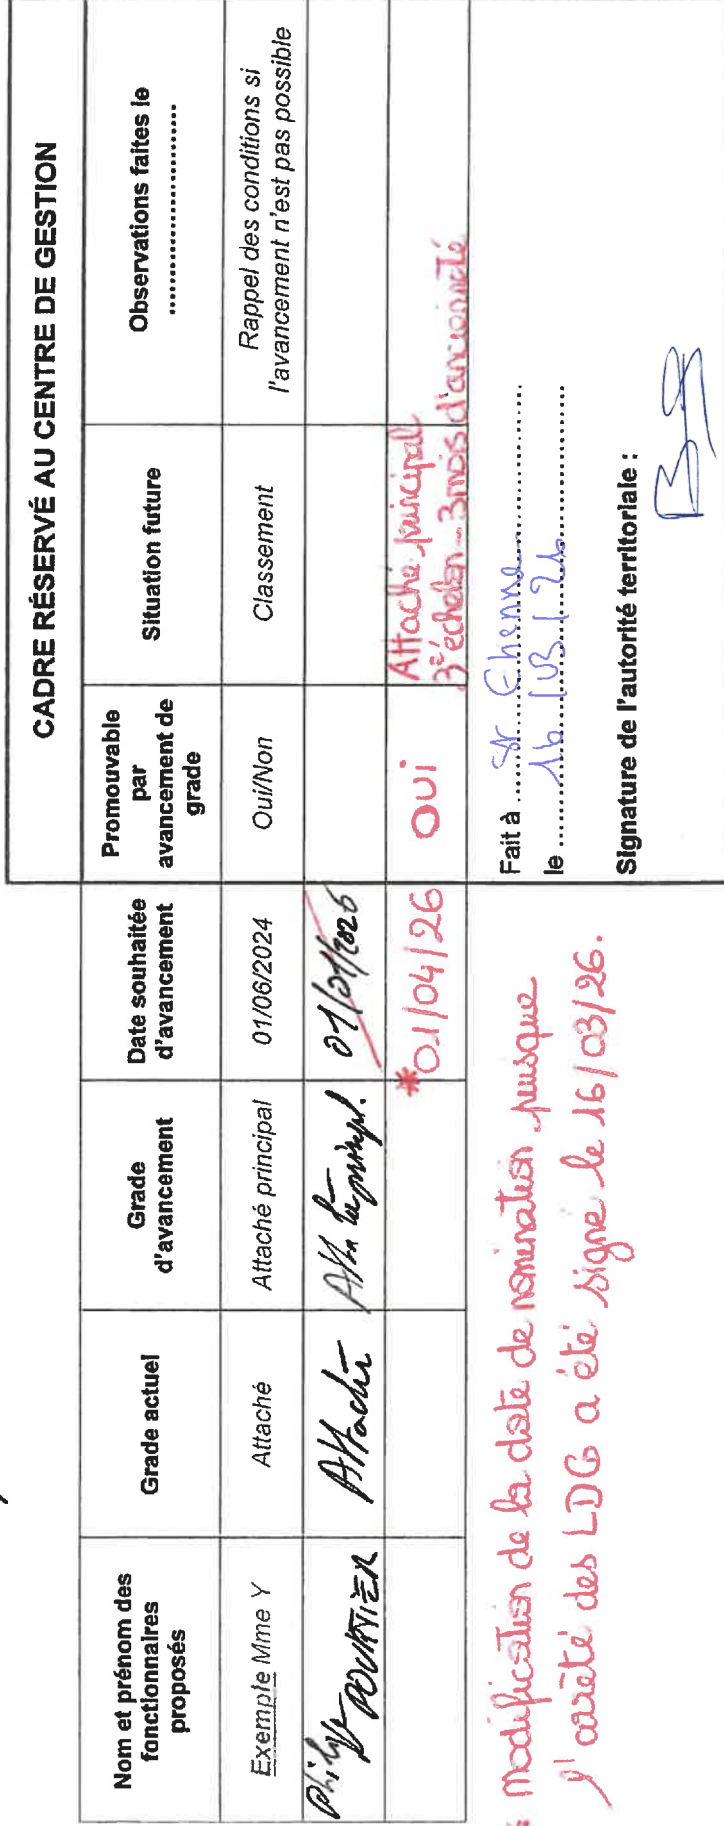 CADRE RÉSERVÉ AU CENTRE DE GESTION
Nom et prénom des fonctionnaires proposés
Grade actuel
Grade d'avancement
Date souhaitée d'avancement
Promouvable par avancement de grade
Situation future
Observations faites le ........................
Exemple Mme Y
Attaché
Attaché principal
01/06/2024
Oui/Non
Classement
Rappel des conditions si l'avancement n'est pas possible
Attaché
01/01/2026
*01/04/26
OUI
Attaché principal
3e échelon - 3 mois d'ancienneté
* modification de la date de nomination puisque
l'arrêté des LDG a été signé le 16/03/26.
Fait à St Etienne
le 16/03/26
Signature de l'autorité territoriale :